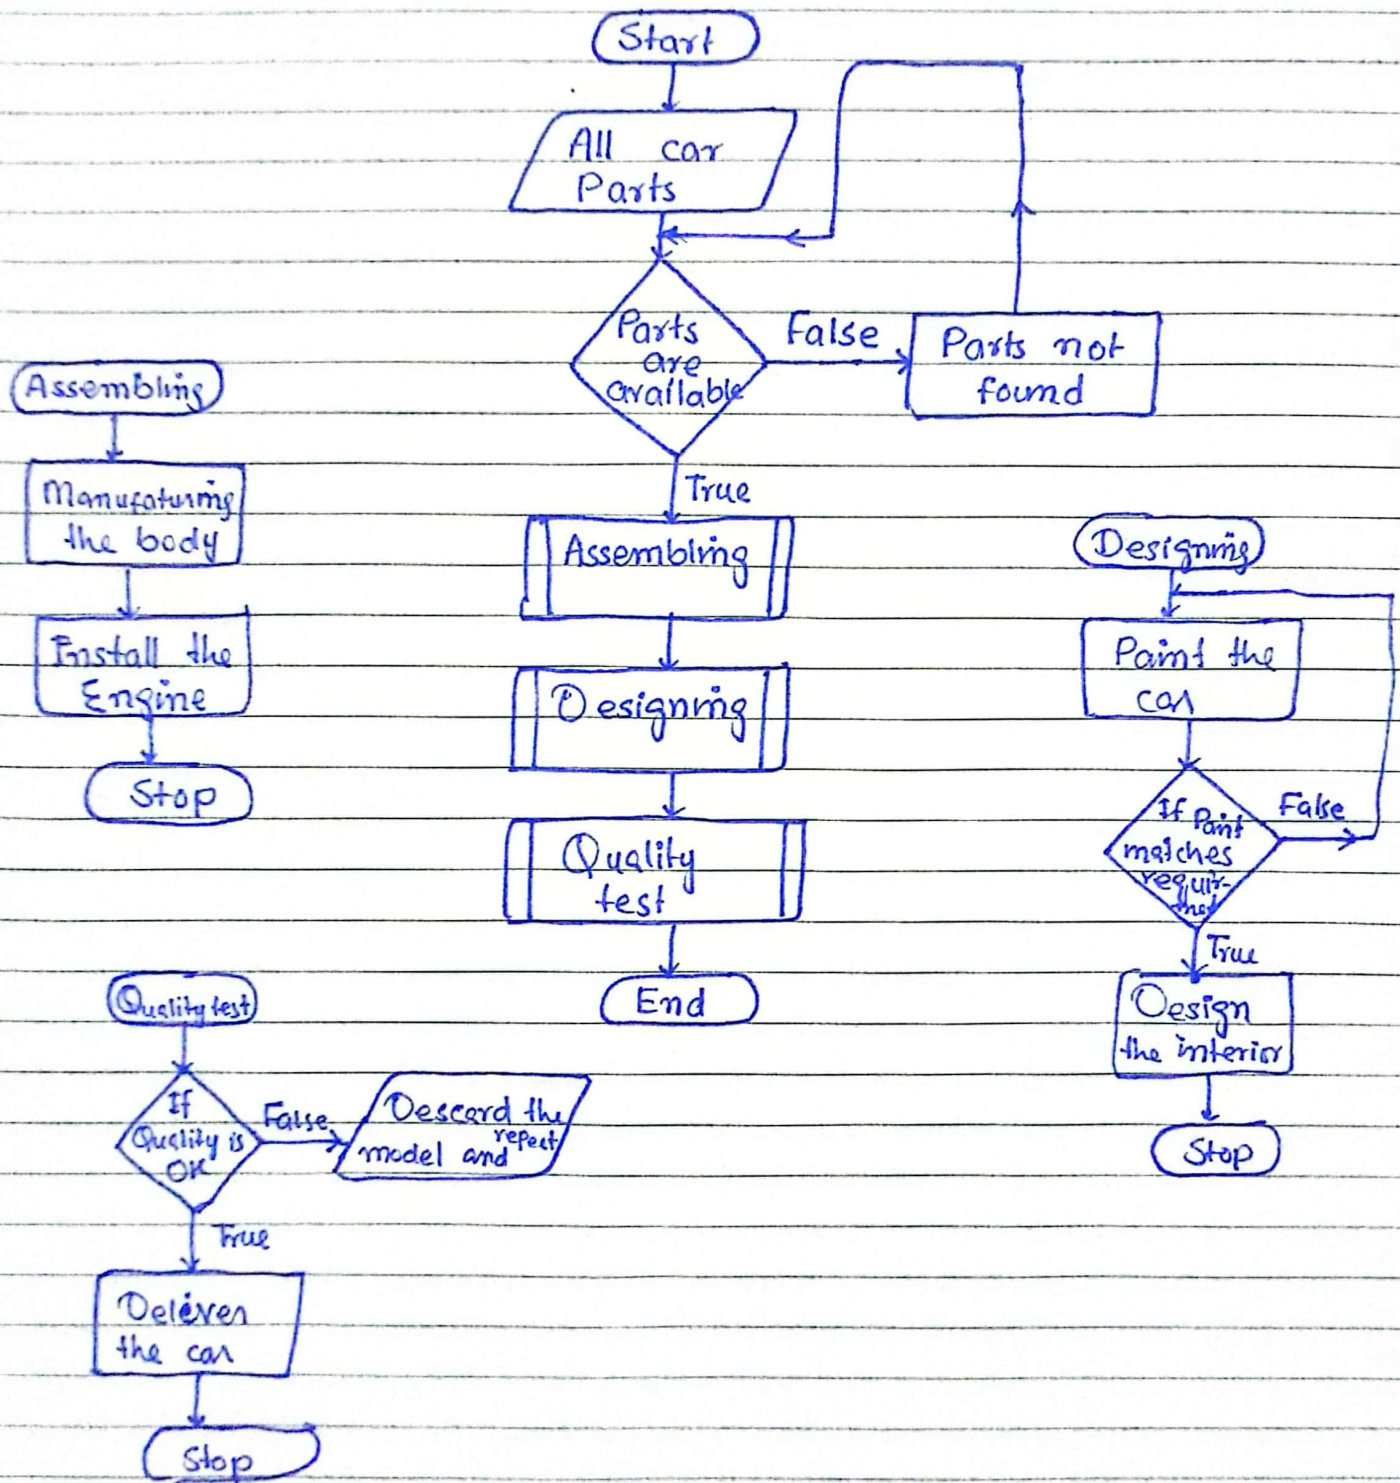 Start
All car
Parts
Parts
are
available
False
Parts not
found
True
Assembling
Designing
Quality
test
End
Assembling
Manufaturing
the body
Install the
Engine
Stop
Designing
Paint the
car
If Paint
matches
requir-
False
True
Design
the interior
Stop
Quality test
If
Quality is
OK
False
Descard the
model and repeat
True
Deliver
the car
Stop